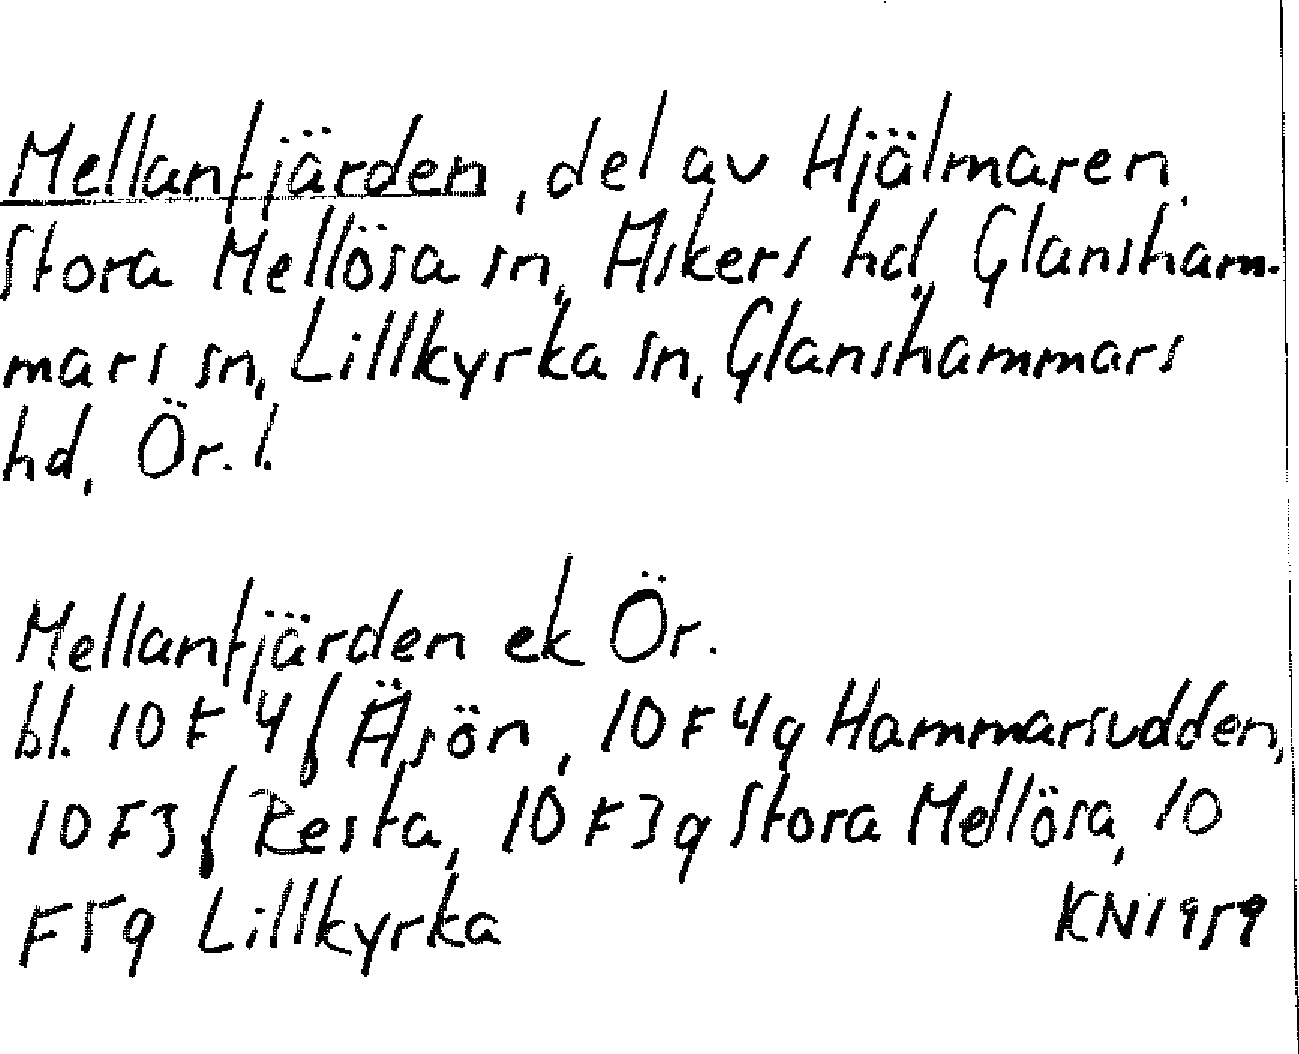 Mellanfjärden, del av Hjälmaren,
Stora Mellösa sn, Askers hd, Glansham-
mars sn, Lillkyrka sn, Glanshammars
hd, Ör. l.
Mellanfjärden ek Ör.
bl. 10 F 4 f Äsön, 10 F 4 g Hammarsudden,
10 F 3 f Resta, 10 F 3 g Stora Mellösa, 10
F 5 g Lillkyrka KN 1959